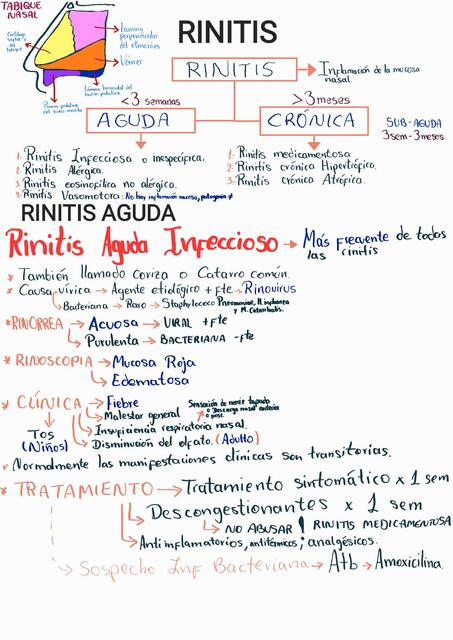 TABIQUE
NASAL
Lamina
perpendicular
del etmoides
Vómer
RINITIS
RINITIS → Inflamación de la mucosa
nasal
<3 semanas
>3 meses
AGUDA
CRÓNICA
SUB-AGUDA
3sem-3meses
1. Rinitis Infecciosa o inespecífica.
2. Rinitis Alérgica.
3. Rinitis eosinofílica no alérgica.
4. Rinitis Vasomotora: No hay inflamación mucosa, patogenia
1. Rinitis medicamentosa
2. Rinitis crónica Hipertrófica.
3. Rinitis crónica Atrófica.
RINITIS AGUDA
Rinitis Aguda Infeccioso → Más frecuente de todos
las rinitis
* También llamado coriza o Catarro común.
* Causa vírica → Agente etiológico +fte → Rinovirus
Bacteriana → Raro → Staphylococo Pneumoniae, H. influenza
y M. Catarrhalis.
* RINORREA → Acuosa → VIRAL +fte
Purulenta → BACTERIANA -fte
* RINOSCOPIA → Mucosa Roja
Edematosa
* CLÍNICA → Fiebre
Malestar general
Sensación de nariz tapada
o Descarga nasal anterior
o post.
Insuficiencia respiratoria nasal.
Disminución del olfato. (Adulto)
Tos
(Niños)
✓ Normalmente las manifestaciones clínicas son transitorias.
* TRATAMIENTO → Tratamiento sintomático x 1 sem
Descongestionantes x 1 sem
NO ABUSAR ! RINITIS MEDICAMENTOSA
Antiinflamatorios, antitérmicos; analgésicos.
Sospecho Inf Bacteriana → Atb → Amoxicilina.